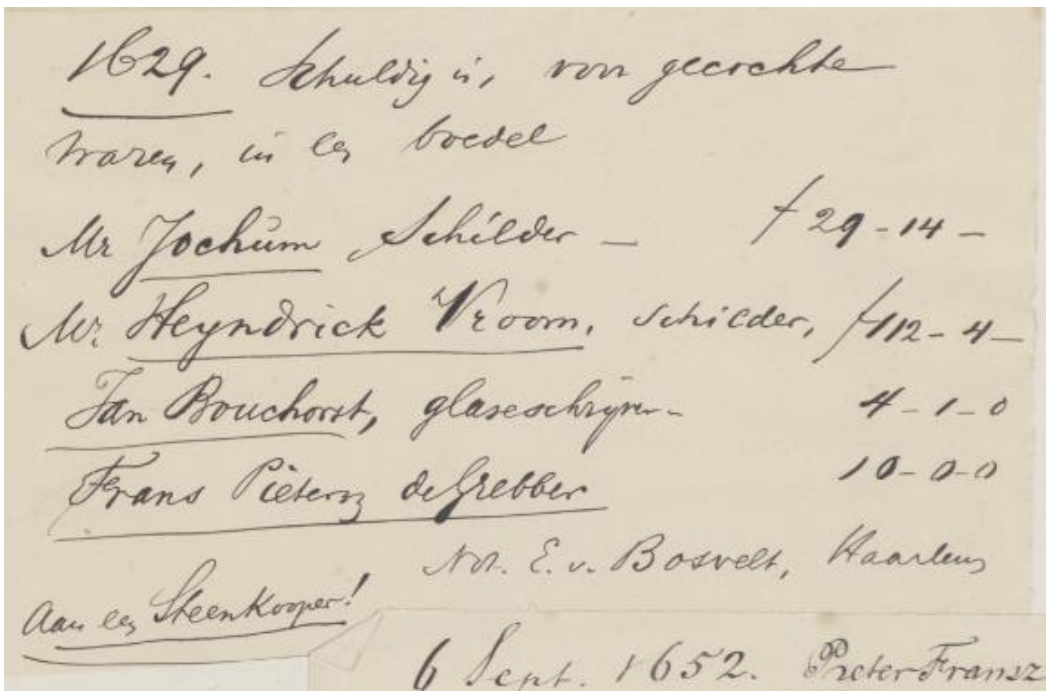 1629. Schuldig is, von gecochte
waren, in een boedel
Mr Jochum Schilder — f 29-14-
Mr Heyndrick Vroom, schilder, f 112-4-
Jan Bouchorst, glaseschryver- 4-1-0
Frans Pietersz de Grebber 10-0-0
Not. E. v. Bosvelt, Haarlem
Aan een Steenkooper!
6 Sept. 1652. Pieter Fransz